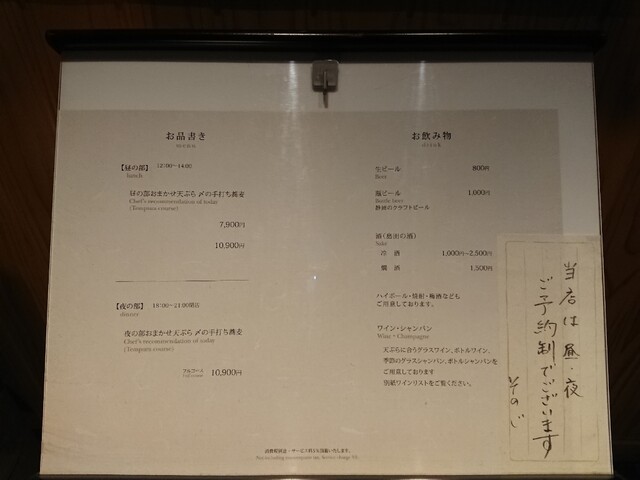 お品書き
menu
【昼の部】 12:00~14:00
lunch
昼の部おまかせ天ぷら〆の手打ち蕎麦
Chef's recommendation of today
(Tempura course)
7,900円
10,900円
【夜の部】 18:00~21:00閉店
dinner
夜の部おまかせ天ぷら〆の手打ち蕎麦
Chef's recommendation of today
(Tempura course)
フルコース
10,900円
お飲み物
drink
生ビール 800円
Beer
瓶ビール 1,000円
Bottle beer
静岡のクラフトビール
Sake
冷 酒 1,000円~2,500円
燗 酒 1,500円
ハイボール・焼酎・梅酒なども
ご用意しております。
ワイン・シャンパン
Wine・Champagne
天ぷらに合うグラスワイン、ボトルワイン、
季節のグラスシャンパン、ボトルシャンパンを
ご用意しております
別紙ワインリストをご覧ください。
当店は昼・夜
ご予約制でございます